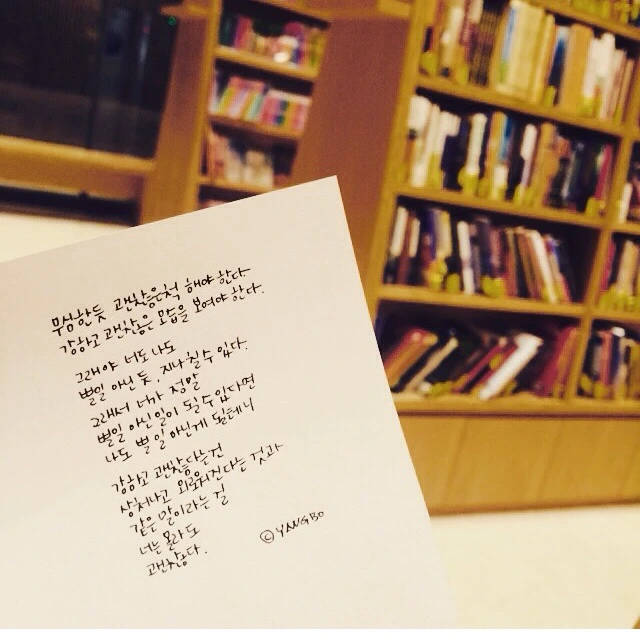 무심한듯 괜찮은척 해야 한다
강하고 괜찮은 모습을 보여야 한다.
그래야 너도 나도
별일 아닌 듯, 지나칠 수 있다.
그래서 너가 정말
별일 아닌일이 될 수 있다면
나도 별 일 아닌게 될테니
강하고 괜찮다는건
상처나고 외로워진다는 것과
같은 말이라는 걸
너는 몰라도
괜찮다.
©YANGBO